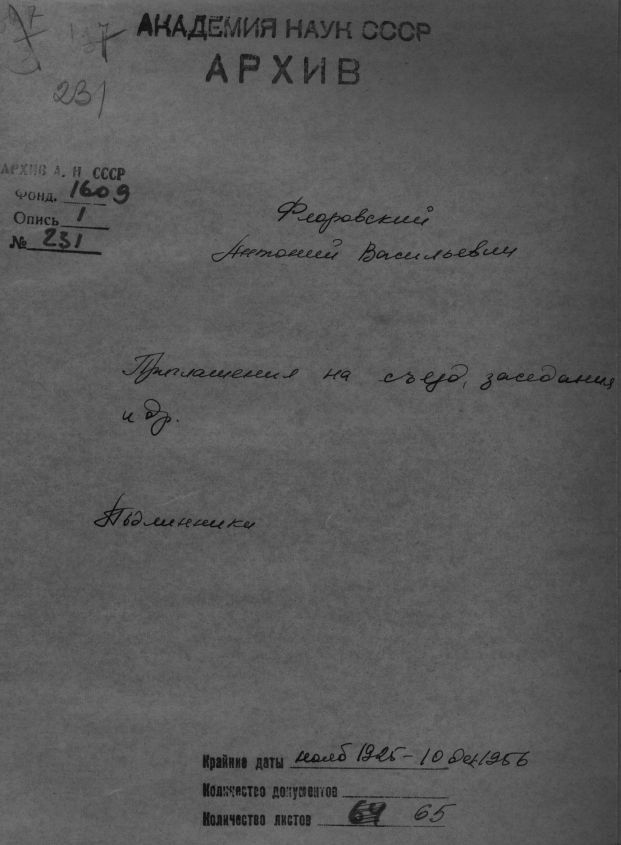 АКАДЕМИЯ НАУК СССР
АРХИВ
231
АРХИВ А. Н. СССР
Фонд. 1609
Опись 1
№ 231
Флоровский
Антоний Васильевич
Приглашения на съезд, заседания
и др.
Подлинники
Крайние даты нояб 1925 – 10 дек 1956
Количество документов
Количество листов 65